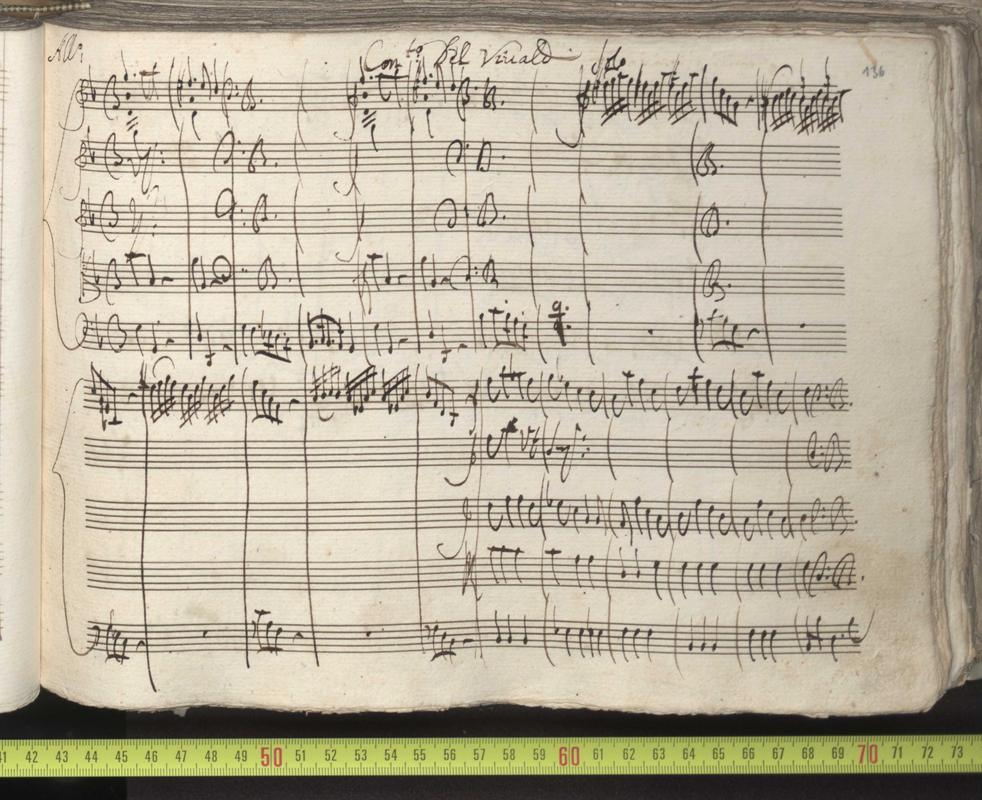 All:o Con.to Del Viualdi Solo 136
41 42 43 44 45 46 47 48 49 50 51 52 53 54 55 56 57 58 59 60 61 62 63 64 65 66 67 68 69 70 71 72 73